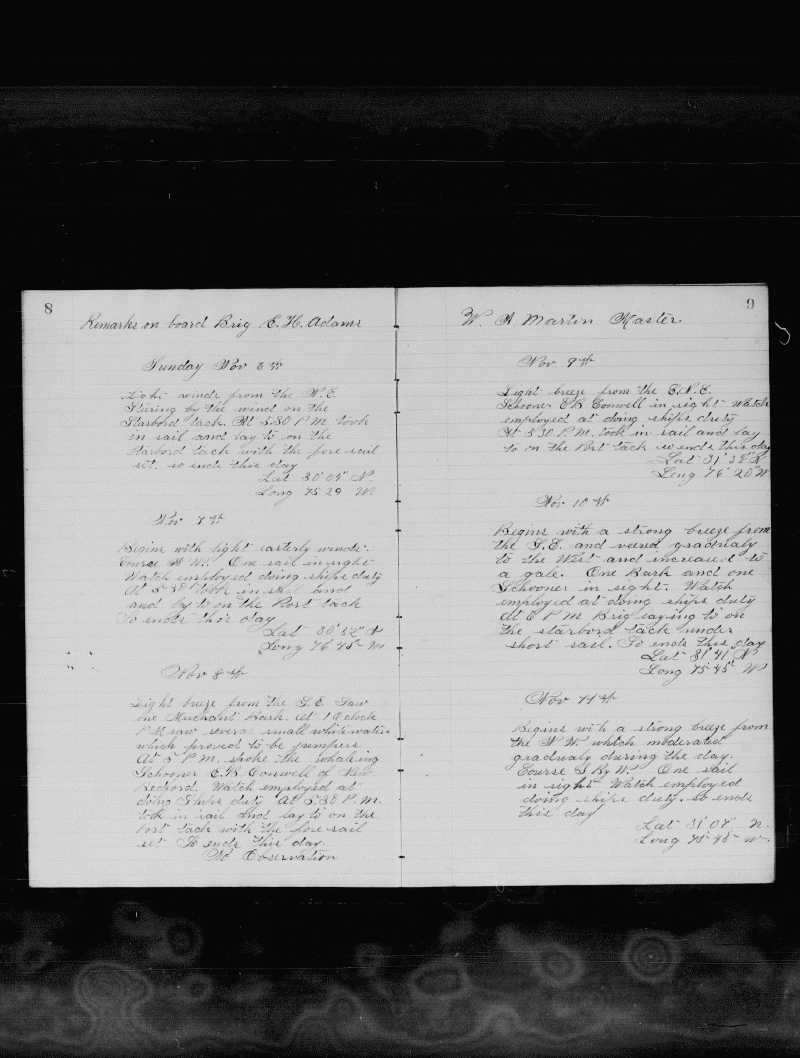 8
Remarks on board Brig E. H. Adams
Sunday Nov 6th
Light winds from the N.E.
Steering by the wind on the
Starbord tack. At 5.30 P.M. took
in sail and lay to on the
starbord tack with the fore sail
set. so ends this day
Lat 30° 05" N.
Long 75 29 W.
Nov 7th
Begins with light easterly winds.
Course N W. One sail in sight
Watch employed doing ships duty
At 5 30 took in sail and
and lay to on the Port tack
So ends this day
Lat 30° 52" N
Long 76° 45" W
Nov 8th
Light breeze from the S.E. Saw
one Merchant Bark. At 1 Oclock
P M saw several small white waters
which proved to be jumpers
At 5 P.M. spoke the whaling
Schooner E.B. Conwell of New
Bedford. Watch employed at
doing Ships duty At 5.30 P.M.
took in sail and lay to on the
Port tack with the fore sail
set So ends this day.
No Observation
9
W. A Martin Master.
Nov 9th
Light breeze from the E.N.E.
Schooner E B Conwell in sight Watch
employed at doing ships duty
At 5 30 P.M. took in sail and lay
to on the Port tack so ends this day
Lat 31° N
Long 76° 20" W
Nov 10th
Begins with a strong breeze from
the S.E. and veered gradualy
to the West and increased to
a gale. One Bark and one
Schooner in sight. Watch
employed at doing ships duty
At 6 P M Brig laying to on
the starbord tack under
short sail. So ends this day
Lat 31° 41" N
Long 75° 45" W
Nov 11th
Begins with a strong breeze from
the N W. which moderated
gradualy during the day.
Course S By W. One sail
in sight Watch employed
doing ships duty. so ends
this day
Lat 31° 07' N.
Long 75° 48" W.